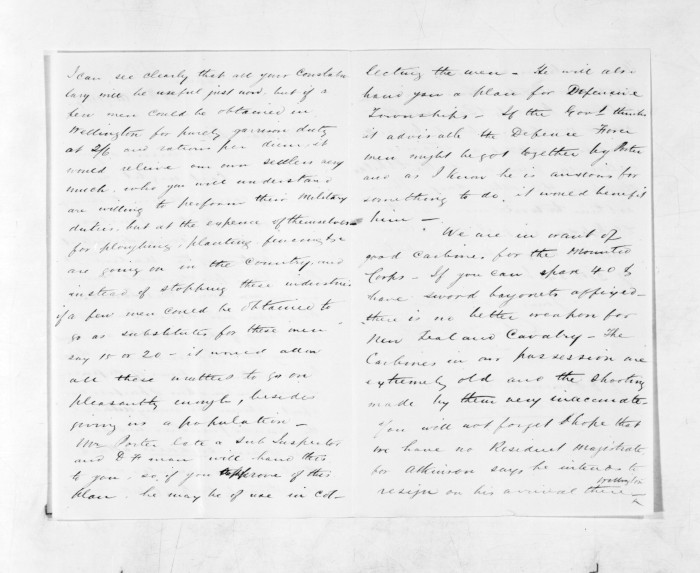 I can see clearly that all your Constabu
lary will be useful just now, but if a
few men could be obtained in
Wellington for purely garrison duty
at 2/6 and rations per diem, it
would relieve our own settlers very
much, who you will understand
are willing to perform their Military
duties, but at the expense of themselves
for ploughing, planting, fencing &c
are going on in the Country, and
instead of stopping these industries
if a few men could be obtained to
go as substitutes for these men
say 15 or 20 - it would allow
all those matters to go on
pleasantly enough, besides
giving us a population -
Mr Porter late a Sub Inspector
and D F man will hand this
to you, so if you approve of this
plan, he may be of use in col-
lecting the men - He will also
hand you a plan for Defensive
Townships - If the Govt. thinks
it advisable the Defence Force
men might be got together by Porter
and as I know he is anxious for
something to do, it would benefit
him -
We are in want of
good Carbines for the Mounted
Corps - If you can spare 40 to
have sword bayonets affixed -
there is no better weapon for
New Zealand Cavalry - The
Carbines in our possession are
extremely old and the shooting
made by them very inaccurate.
You will not forget I hope that
we have no Resident Magistrate
for Atkinson says he intends to
resign on his arrival there -
Wellington